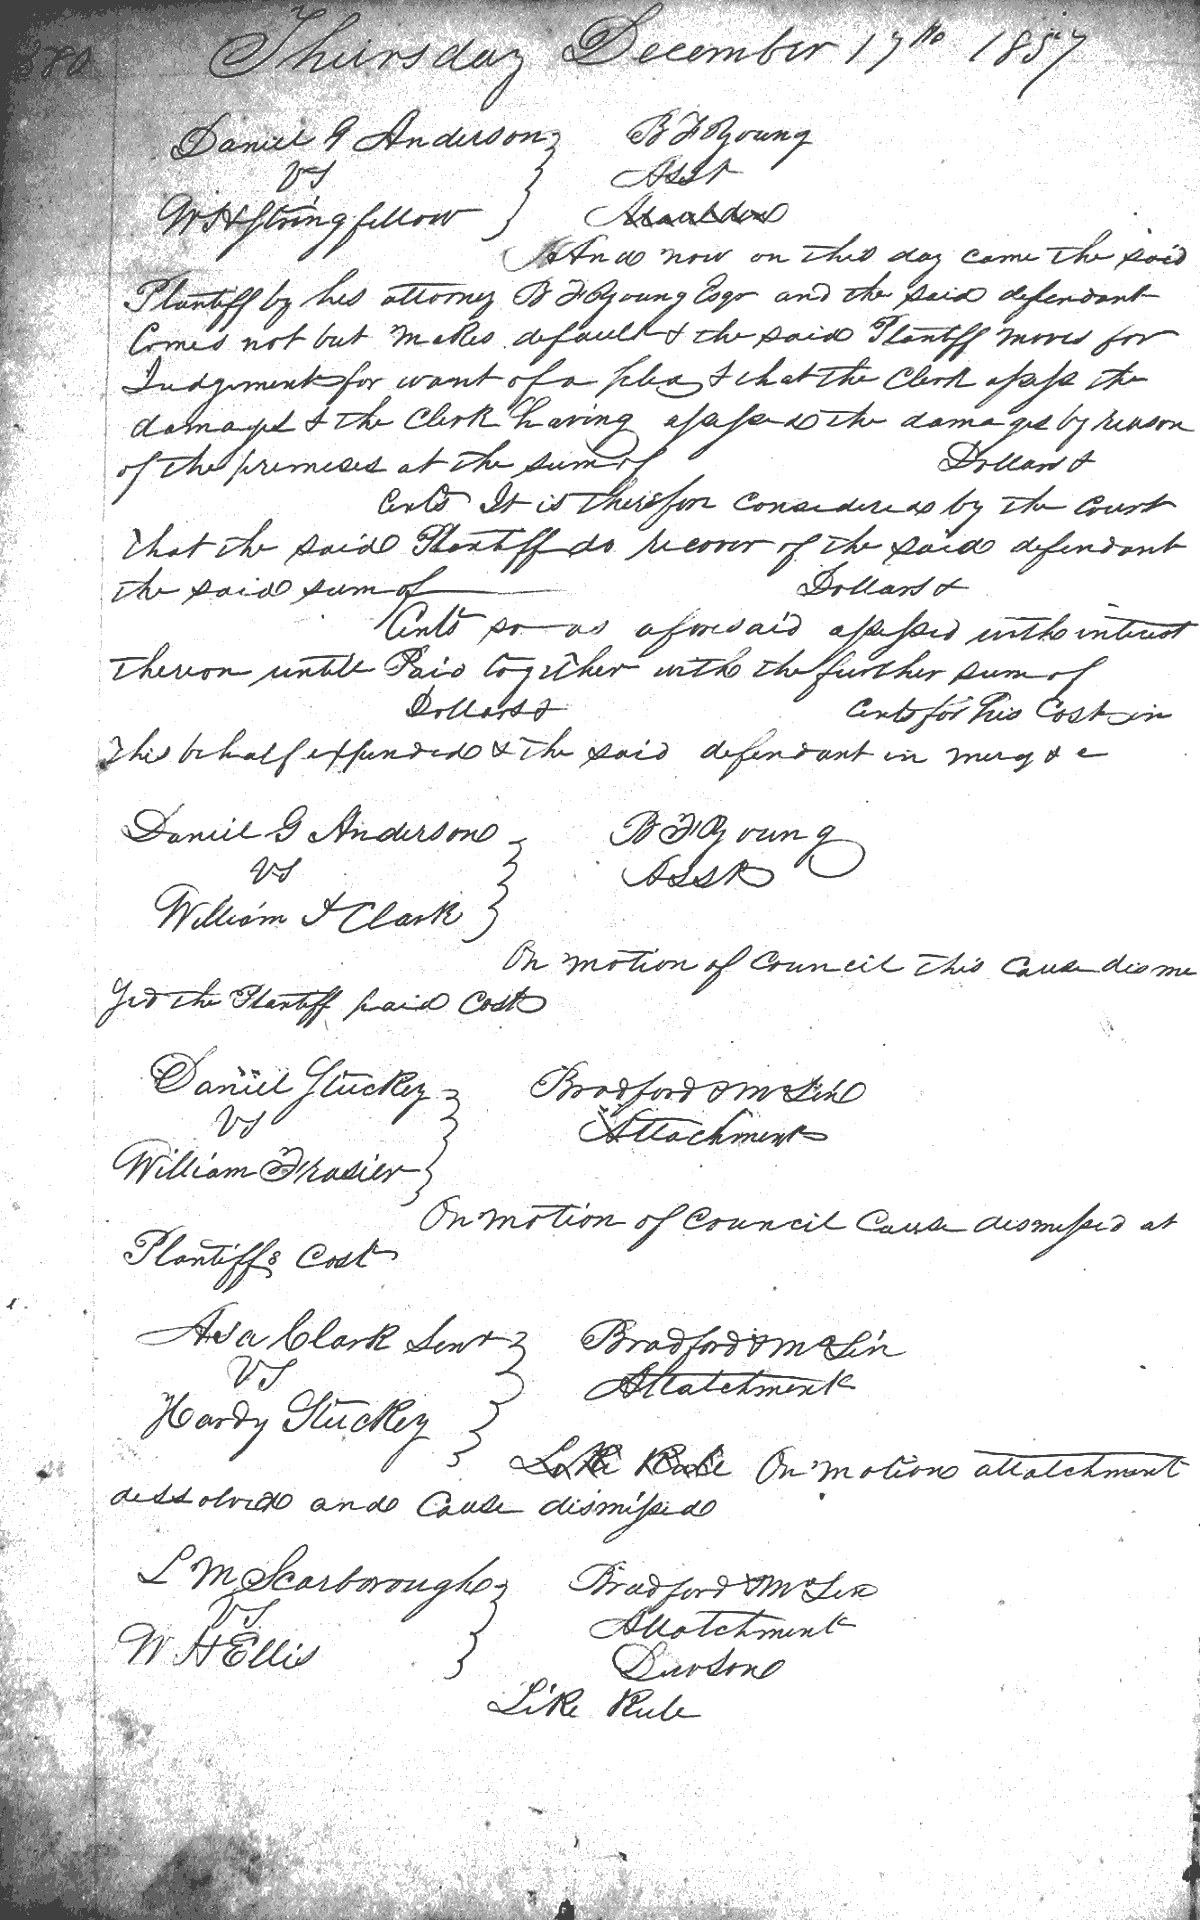 380
Thursday December 17th 1857
Daniel G Anderson } B F Young
vs } Asst
W H Stringfellow }
And now on this day came the said
Plantiff by his attorney B F Young Esqr and the said defendant
Comes not but makes default & the said Plantiff moves for
Judgement for want of a plea & that the Clerk assess the
damages & the Clerk having assessed the damages by reason
of the premises at the sum of Dollars &
Cents It is therefore considered by the court
that the said Plantiff do recover of the said defendant
the said sum of Dollars &
Cents so as aforesaid assessed with interest
thereon untill Paid together with the further sum of
Dollars & Cents for his Cost in
this behalf expended & the said defendant in mercy & c
Daniel G Anderson } B F Young
vs } Asst
William Clark }
On motion of Council this Cause dismi
ssd the Plantiff paid Cost
Daniel Stuckey } Bradford & McLin
vs } Attachment
William Frasier }
On motion of Council Cause dismissed at
Plantiffs Cost
Asa Clark Senr } Bradford & McLin
VS } Attatchment
Hardy Stuckey }
Like Rule On motion attatchment
dessolved and Cause dismissed
L M Scarborough } Bradford & McLin
VS } Attotchment
W H Ellis } Dawson
Like Rule